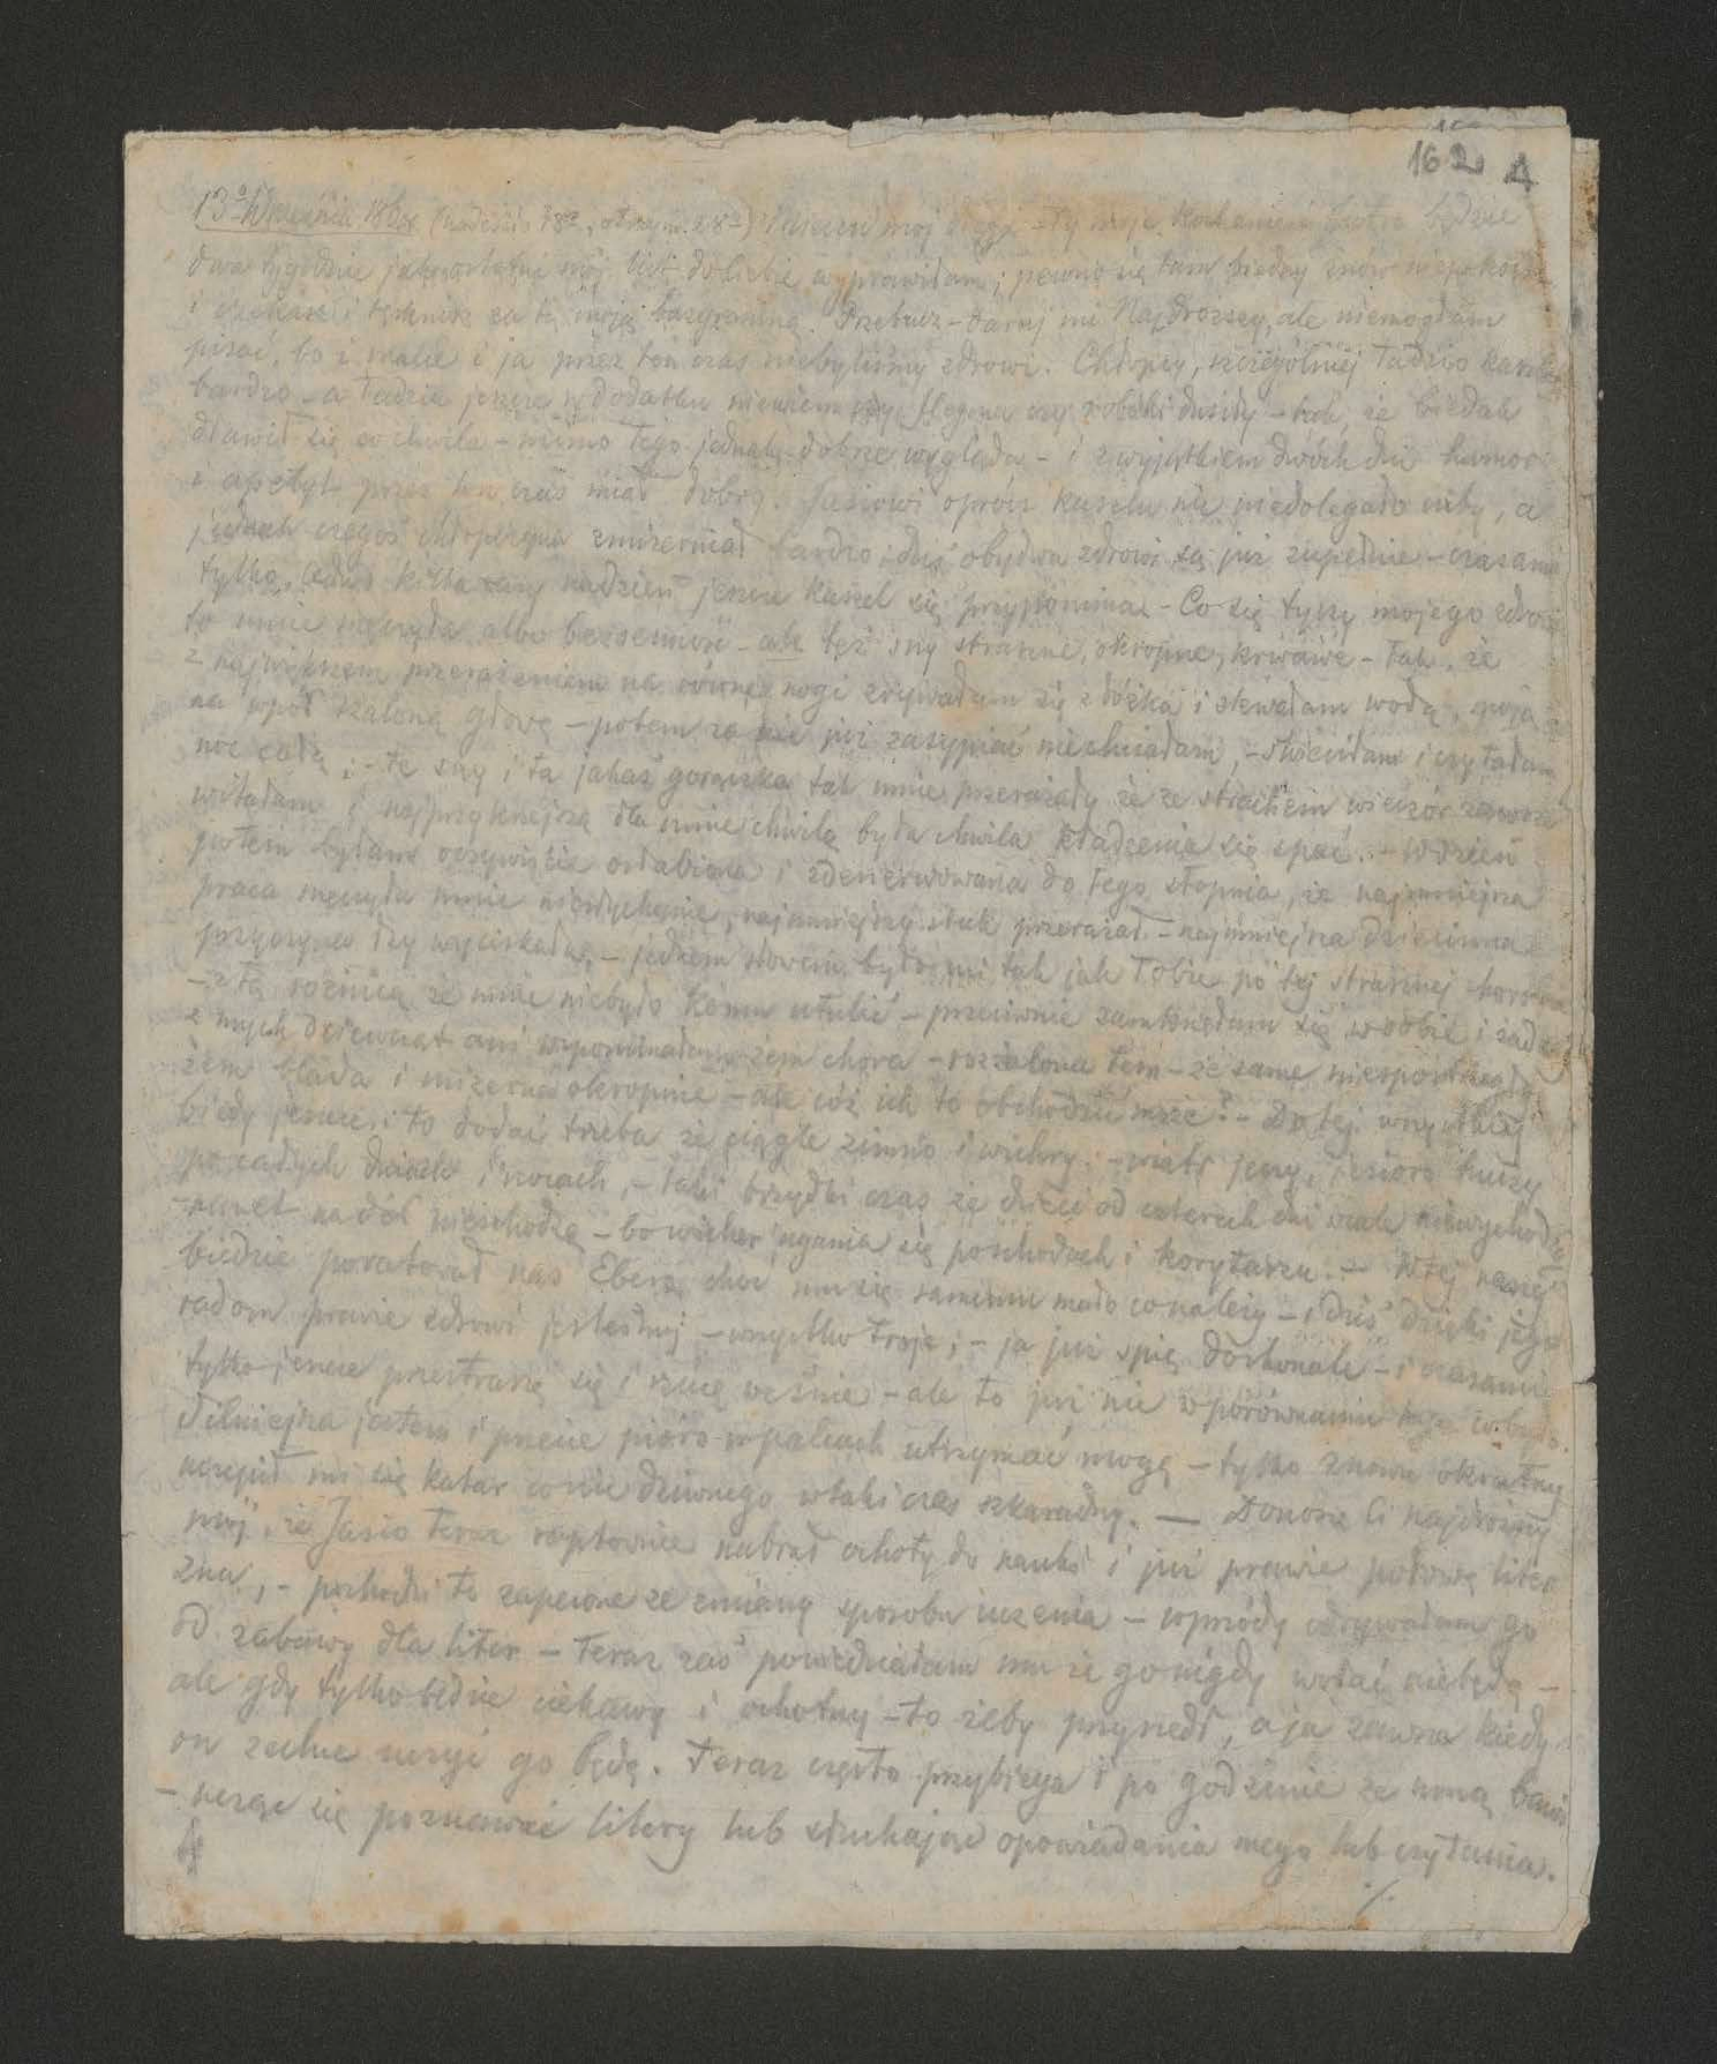 162 4
13º Września (nadeszło 18º, otrzym. 28º) mój drogi - Ty moje Kochanie będzie
dwa tygodnie jak ostatni mój list do Ciebie wyprawiłam; pewno się tam biedny znów niepokoisz
i czekasz i tęsknisz za tą moją bazgraniną. Przebacz - daruj mi Najdroższy, ale niemogłam
pisać, bo i malce i ja przez ten czas niebyliśmy zdrowi. Chłopcy, szczególniej Tadzio kaszlał
bardzo - a Tadzia jeszcze w dodatku niewiem czy flegma czy robaki dusiły - tak, że biedak
dławił się co chwila - mimo tego jednak dobrze wygląda - i z wyjątkiem dwóch dni humor
i apetyt przez ten czas miał dobry. Jasiowi oprócz kaszlu nic niedolegało niby, a
jednak czegoś chłopczyna zmizerniał bardzo; dziś obydwa zdrowi są już zupełnie - czasami
tylko, kilka razy nadzień jeszcze kaszel się przypomina - Co się tyczy mojego zdrowia
to mnie męczyła albo bezsenność - albo też sny straszne, okropne, krwawe - tak, że
z największem przerażeniem na równe nogi zrywałam się z łóżka i zlewałam wodą, moją
na wpół szaloną głowę - potem za nic już zasypiać niechciałam, - świeciłam i czytałam
noc całą; - te sny i ta jakaś gorączka tak mnie przerażały że ze strachem wieczór zawsze
witałam i najprzykrzejszą dla mnie chwilą była chwila kładzenia się spać. - W dzień
potem byłam oczywiście osłabiona i zdenerwowana do tego stopnia, że najmniejsza
praca męczyła mnie niesłychanie, najmniejszy stuk przerażał - najmniejsza dziecinna
przyczyna łzy wyciskała, - jednem słowem było mi tak jak Tobie po tej strasznej chorobie
- z tą różnicą że mnie niebyło komu utulić - przeciwnie zamknęłam się w sobie i żadnej
z mych dziewcząt ani wspominałam żem chora - rozżalona tem - że same niespostrzegły
żem blada i mizerna okropnie - ale cóż ich to obchodzić może? - Do tej wszystkiej
biedy jeszcze i to dodać trzeba że ciągle zimno i wichry. - wiatr jęczy, jezioro huczy
po całych dniach i nocach, - taki brzydki czas że dzieci od czterech dni wcale niewychodzą
- nawet na dół nieschodzą - bo wicher ugania się po schodach i korytarzu. - W tej naszej
biedzie poratował nas Ebers, choć mu się samemu mało co należy - i dziś dzięki jego
radom prawie zdrowi jesteśmy - wszystko troje; - ja już śpię doskonale - i czasami
tylko jeszcze przestraszę się i rzucę we śnie - ale to już nic w porównaniu tego co było.
Silniejsza jestem i przecie pióro w palcach utrzymać mogę - tylko znowu okrutny
uczepił mi się katar co nic dziwnego w taki czas szkaradny. — Donoszę Ci najdroższy
mój, że Jasio teraz raptownie nabrał ochoty do nauki i już prawie połowę liter
zna, - pochodzi to zapewne ze zmianą sposobu uczenia - wprzódy odrywałam go
od zabawy dla liter - teraz zaś powiedziałam mu że go nigdy wołać niebędę -
ale gdy tylko będzie ciekawy i ochotny - to żeby przyszedł, a ja zawsze kiedy
on zechce uczyć go będę. Teraz często przybiega i po godzinie ze mną bawi
- ucząc się poznawać litery lub słuchając opowiadania mego lub czytania.
4
./.